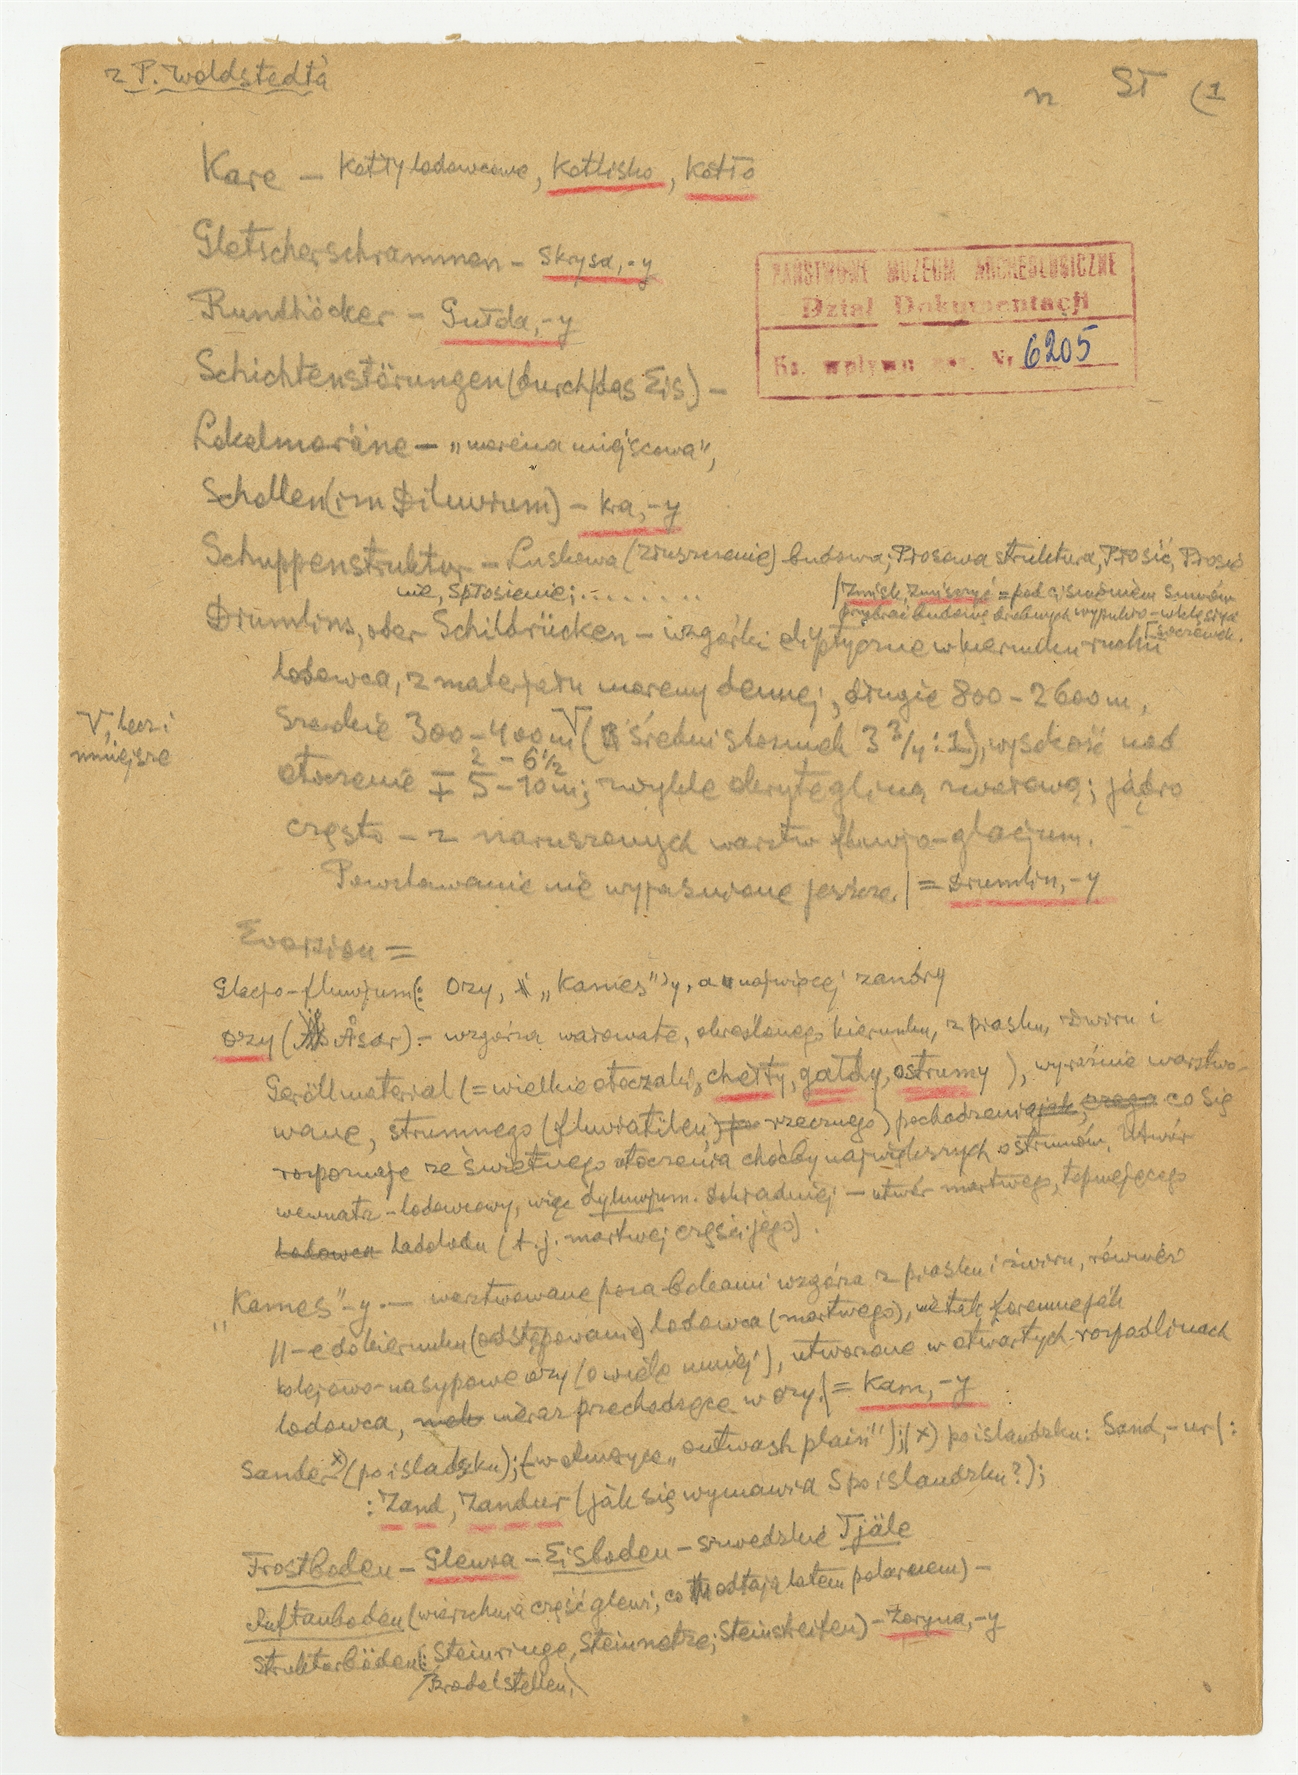 z P. Woldstedta
n ST (1
Kare – Kotły lodowcowe, Kotlisko, Kotło
Gletscherschrammen – Skrysa, -y
PAŃSTWOWE MUZEUM ARCHEOLOGICZNE
Dział Dokumentacji
Ks. wpływu Nr 6205
Rundhöcker – Gułda, -y
Schichtenstörungen (durch das Eis) –
Lokalmoräne – „morena miejscowa",
Schollen (im Diluvium) – kra, -y
Schuppenstruktur – Łuskowa (złuszczenie) budowa; Płosowa struktura, Płosić, Płosze
nie, spłosienie; ........
= pod ciśnieniem
przybrać budowę drobnych wypukło-wklęsłych
soczewek.
Drumlins, oder Schildrücken – wzgórki eliptyczne w kierunku ruchu
lodowca, z materjału moreny dennej, długie 800 – 2600 m,
V, lecz i
mniejsze
szerokie 300 – 400 m V (średni stosunek 3 3/4 : 1), wysokość nad
2 – 6 1/2
otoczenie ∓ 5 – 10 m; zwykle okryte gliną zwałową; jądro
często – z naruszonych warstw fluwjo-glacjum.
Powstawanie nie wyjaśnione jeszcze. | = Drumlin, -y
Evorsion =
Glacjo-fluwjum (: Ozy, „Kames"'y, a najwięcej zandry
Ozy (Åsar). – wzgórza wałowate, określonego kierunku, z piasku, żwiru i
Geröllmaterial (= wielkie otoczaki, chełty, gałdy, ostrumy), wyraźnie warstwo-
wane, strumnego (fluviatilen, rzecznego) pochodzenia jak, czego co się
rozpoznaje ze świetnego otoczenia choćby największych ostrumów. Utwór
wewnątrz-lodowcowy, więc dyluwjum. Dokładniej – utwór martwego, topniejącego
Lodowca Lądolodu (t.j. martwej części jego).
„Kames"-y. — warstwowane poza boleami wzgórza z piasku i żwiru, również
||-e do kierunku (odstępowanie) lodowca (martwego), nie tak foremne jak
kolejowo-nasypowe ozy (o wiele mniej), utworzone w otwartych rozpadlinach
lodowca, nieraz przechodzące w ozy. | = Kam, -y
Sander x) (po isladzku); (w ameryce „outwash plain"); (x) po islandzku: Sand, -ur (:
: Zand, Zandur (jak się wymawia S po islandzku?);
Frostboden – Glewia – Eisboden – szwedzkie Tjäle
Auftauboden (wierzchnia część glewi, co odtaja latem polarnem) –
Strukturböden (: Steinringe, Steinnetze; Steinstreifen) – Zoryna, -y
/Brodelstellen,\